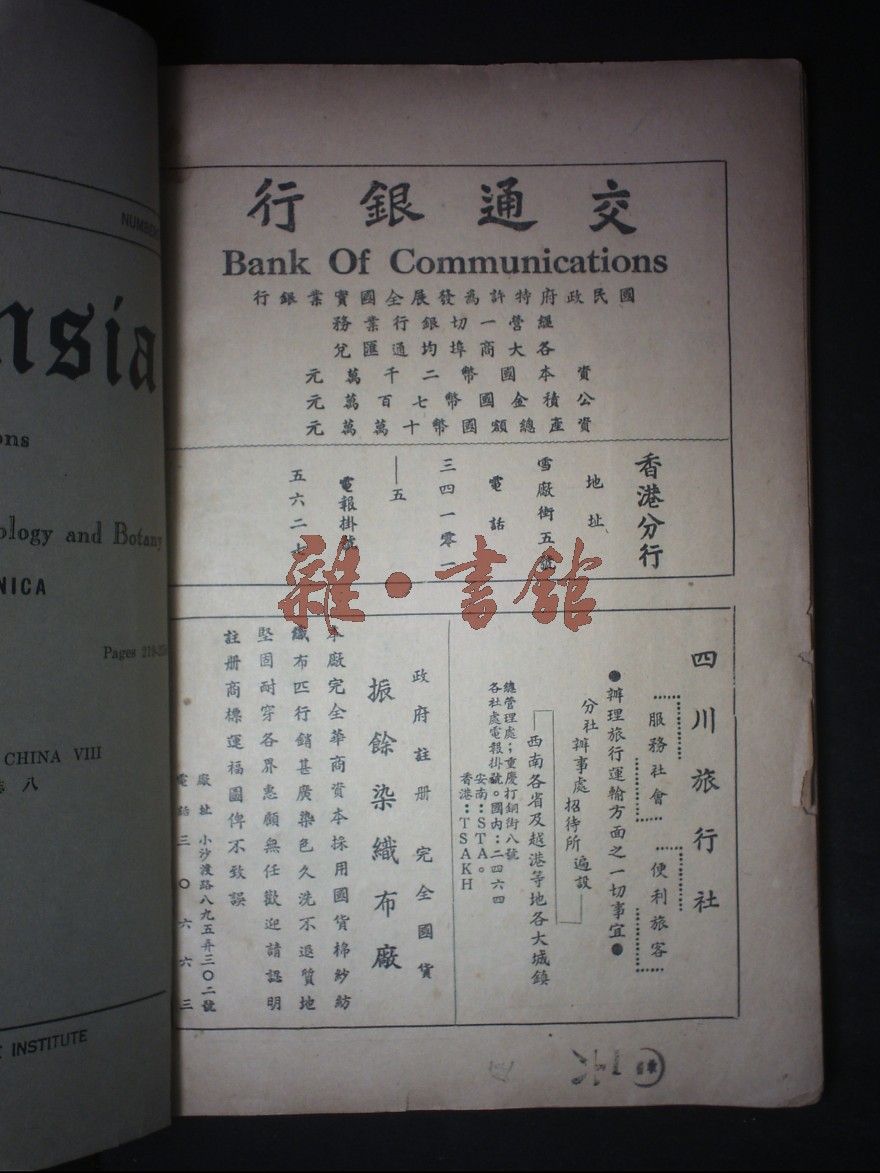 NUMBER
nsia
ons
ology and Botany
NICA
Pages 219-
CHINA VIII
八
INSTITUTE
交通銀行
Bank Of Communications
國民政府特許為發展全國實業銀行
經營一切銀行業務
各大商埠均通匯兌
資本國幣二千萬元
公積金國幣七百萬元
資產總額國幣十萬萬元
香港分行
地址
雪廠街五號
電話
三四一零一
——五
電報掛號
五六二七
雜·書館
四川旅行社
服務社會
便利旅客
●辦理旅行運輸方面之一切事宜●
分社
辦事處
招待所
遍設
西南各省及越港等地各大城鎮
總管理處；重慶打銅街八號
各社處電報掛號。國內：二四六四
安南：STA。
香港：TSAKH
政府註册 完全國貨
振餘染織布廠
本廠完全華商資本採用國貨棉紗紡
織布匹行銷甚廣染色久洗不退質地
堅固耐穿各界惠顧無任歡迎請認明
註册商標運福圖俾不致誤
廠址 小沙渡路八九五弄三〇二號
電話 三〇六六三